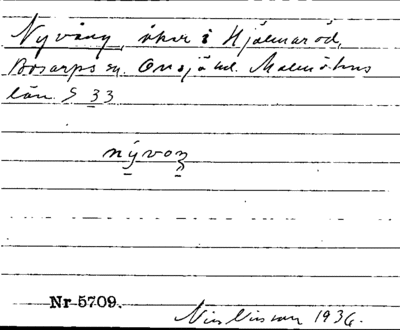 Nyvång, åker i Hjälmaröd,
Bosarps sn. Onsjö hd. Malmöhus
län. S 33
nývoŋ
Nr 5709.
Nils Nilsson 1936.